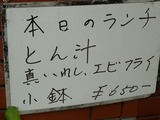 本日のランチ
とん汁
真いわし、エビフライ
小鉢 ¥650-